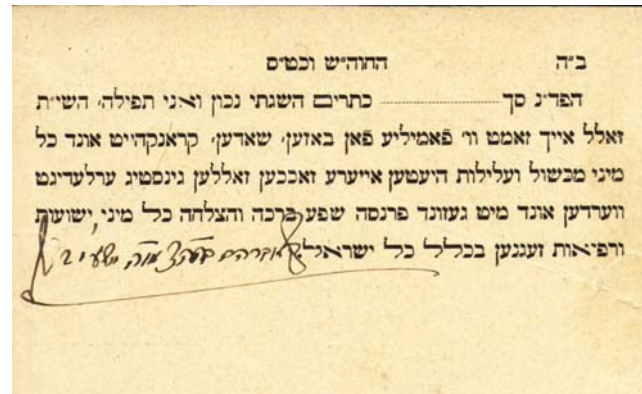 ב״ה החוה״ש וכט״ס
הפד״נ סך ............ כתרים השגתי נכון ואני תפילה׳ השי״ת
זאלל אייך זאמט וו׳ פאמיליע פאן באזען׳ שאדען׳ קראנקהייט אונד כל
מיני מכשול ועלילות היעטען אייערע זאככען זאללען גינסטיג ערלעדיגט
ווערדען אונד מיט געזונד פרנסה שפע ברכה והצלחה כל מיני ישועות
ורפיאות זעגנען בכלל כל ישראל